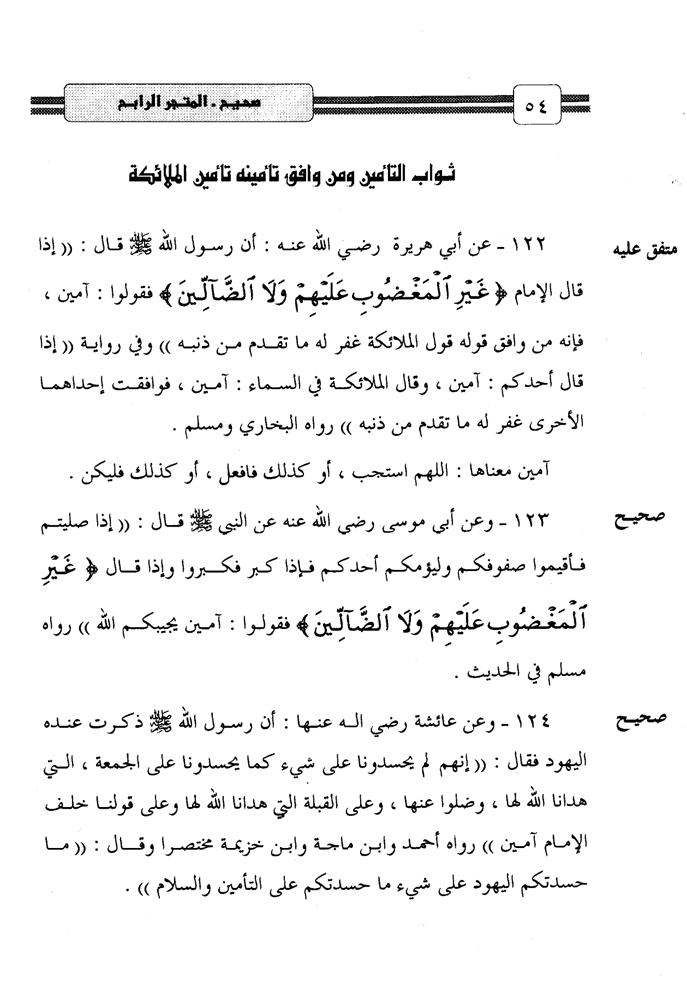 ٥٤
صحيح - المتجر الرابح
ثواب التأمين ومن وافق تأمينه تأمين الملائكة
متفق عليه
١٢٢ - عن أبي هريرة رضي الله عنه : أن رسول الله ﷺ قال : (( إذا
قال الإمام ﴿ غَيْرِ ٱلْمَغْضُوبِ عَلَيْهِمْ وَلَا ٱلضَّآلِّينَ ﴾ فقولوا : آمين ،
فإنه من وافق قوله قول الملائكة غفر له ما تقدم من ذنبه )) وفي رواية (( إذا
قال أحدكم : آمين ، وقال الملائكة في السماء : آمين ، فوافقت إحداهما
الأخرى غفر له ما تقدم من ذنبه )) رواه البخاري ومسلم .
آمين معناها : اللهم استجب ، أو كذلك فافعل ، أو كذلك فليكن .
صحيح
١٢٣ - وعن أبي موسى رضي الله عنه عن النبي ﷺ قال : (( إذا صليتم
فأقيموا صفوفكم وليؤمكم أحدكم فإذا كبر فكبروا وإذا قال ﴿ غَيْرِ
ٱلْمَغْضُوبِ عَلَيْهِمْ وَلَا ٱلضَّآلِّينَ ﴾ فقولوا : آمين يجيبكم الله )) رواه
مسلم في الحديث .
صحيح
١٢٤ - وعن عائشة رضي اله عنها : أن رسول الله ﷺ ذكرت عنده
اليهود فقال : (( إنهم لم يحسدونا على شيء كما يحسدونا على الجمعة ، التي
هدانا الله لها ، وضلوا عنها ، وعلى القبلة التي هدانا الله لها وعلى قولنا خلف
الإمام آمين )) رواه أحمد وابن ماجة وابن خزيمة مختصرا وقال : (( ما
حسدتكم اليهود على شيء ما حسدتكم على التأمين والسلام )) .